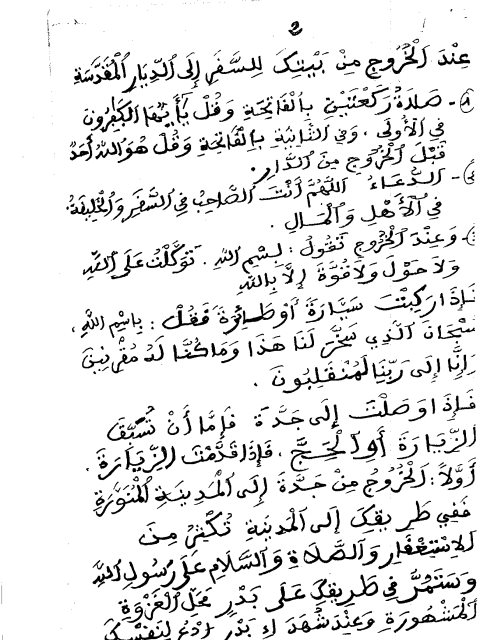 2
عِنْدَ الْخُرُوجِ مِنْ بَيْتِكَ لِلسَّفَرِ إِلَى الدِّيَارِ الْمُقَدَّسَةِ
- صَلَاةُ رَكْعَتَيْنِ بِالْفَاتِحَةِ وَقُلْ يَأَيُّهَا الْكَفِرُونَ
فِي الْأُولَى ، وَفِي الثَّانِيَةِ بِالْفَاتِحَةِ وَقُلْ هُوَ اللهُ أَحَدٌ
قَبْلَ الْخُرُوجِ مِنَ الدَّارِ .
- الدُّعَاءُ اللَّهُمَّ أَنْتَ الصَّاحِبُ فِي السَّفَرِ وَالْخَلِيفَةُ
فِي الْأَهْلِ وَالْمَالِ .
- وَعِنْدَ الْخُرُوجِ تَقُولُ : بِسْمِ اللهِ . تَوَكَّلْتُ عَلَى اللهِ
وَلَا حَوْلَ وَلَا قُوَّةَ إِلَّا بِاللهِ
فَإِذَا رَكِبْتَ سَيَّارَةً أَوْ طَائِرَةً فَقُلْ : بِاسْمِ اللهِ ،
سُبْحَانَ الَّذِي سَخَّرَ لَنَا هَذَا وَمَا كُنَّا لَهُ مُقْرِنِينَ
وَإِنَّا إِلَى رَبِّنَا لَمُنْقَلِبُونَ .
فَإِذَا وَصَلْتَ إِلَى جَدَّةَ فَإِمَّا أَنْ تُسَبِّقَ
الزِّيَارَةَ أَوِ الْحَجَّ . فَإِذَا قَدَّمْتَ الزِّيَارَةَ .
أَوَّلًا : الْخُرُوجُ مِنْ جَدَّةَ إِلَى الْمَدِينَةِ الْمُنَوَّرَةِ
فَفِي طَرِيقِكَ إِلَى الْمَدِينَةِ تُكْثِرُ مِنَ
الِاسْتِغْفَارِ وَالصَّلَاةِ وَالسَّلَامِ عَلَى رَسُولِ اللهِ
وَسَتَمُرُّ فِي طَرِيقِكَ عَلَى بَدْرٍ مَحَلِّ الْغَزْوَةِ
الْمَشْهُورَةِ وَعِنْدَ شُهَدَاءِ بَدْرٍ ادْعُ لِنَفْسِكَ